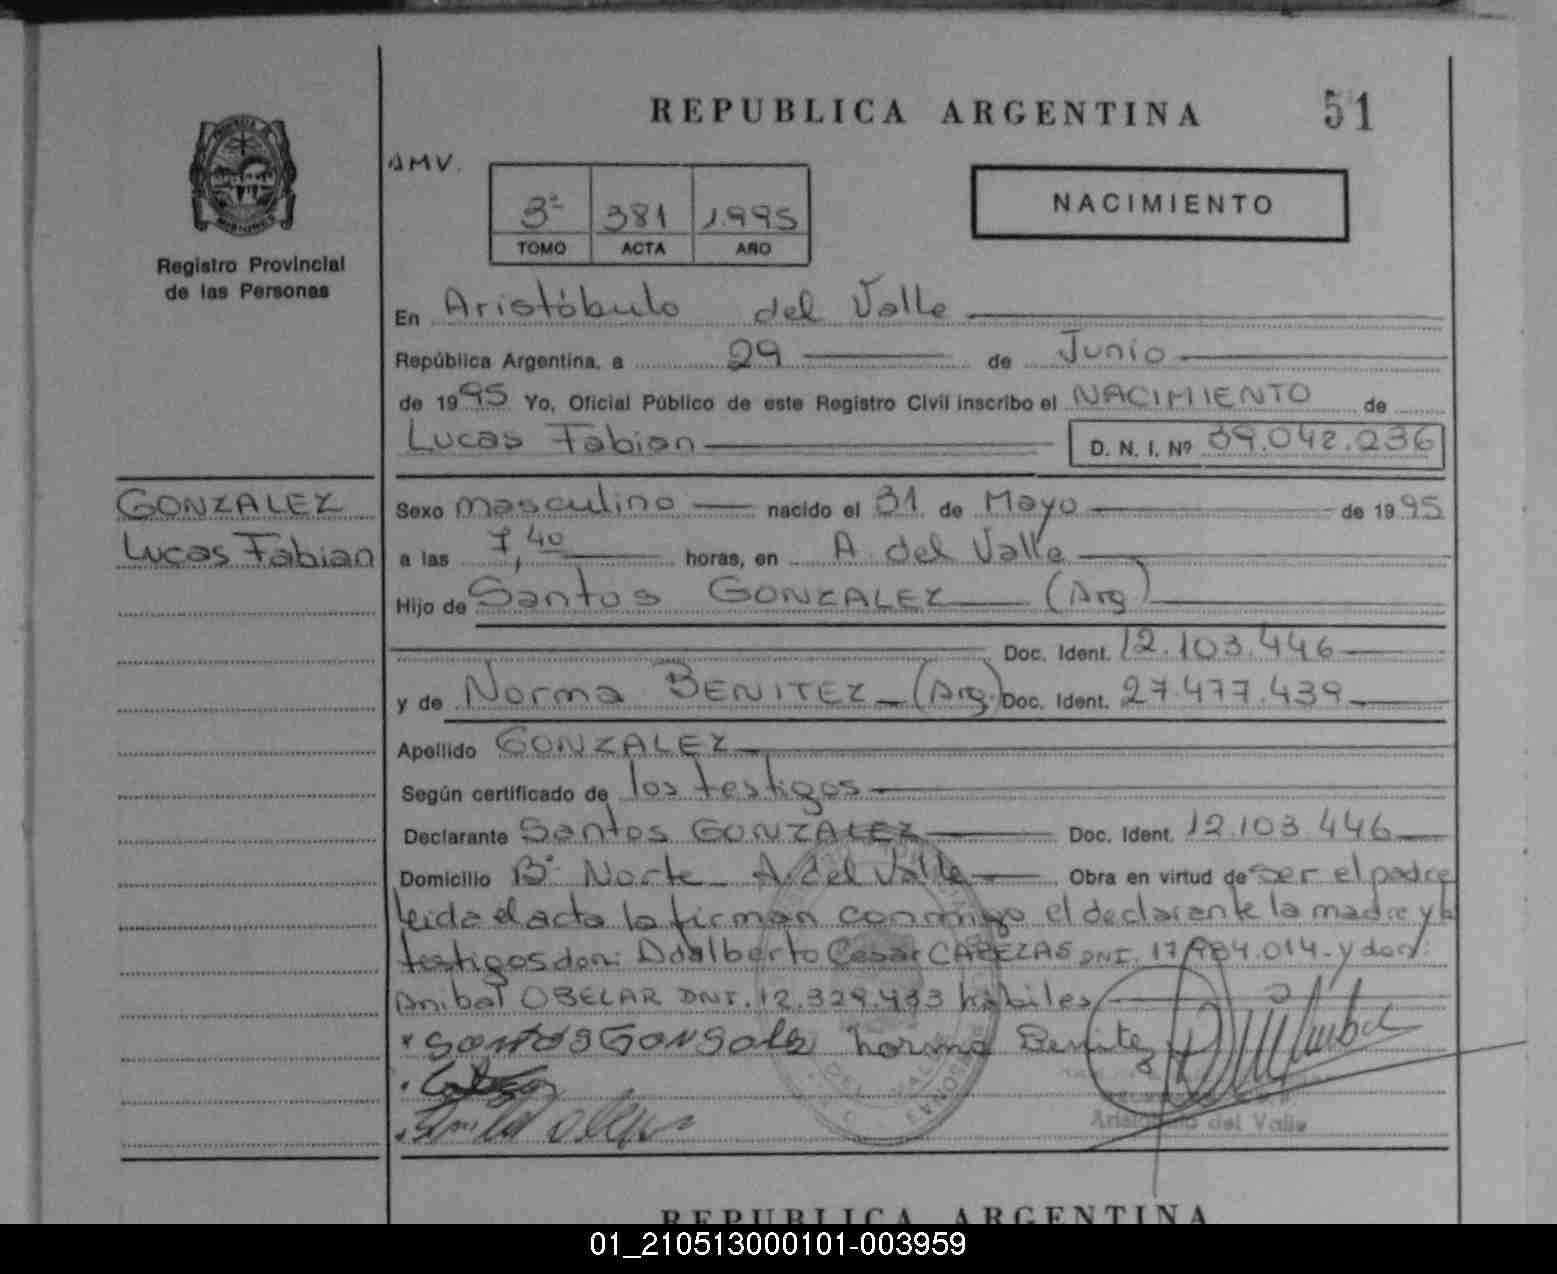 REPUBLICA ARGENTINA
51
AMV.
3º 381 1.995
TOMO ACTA AÑO
NACIMIENTO
Registro Provincial
de las Personas
En Aristóbulo del Valle
República Argentina, a 29 de Junio
de 1995 Yo, Oficial Público de este Registro Civil inscribo el NACIMIENTO de
Lucas Fabian D. N. I. Nº 39.042.236
GONZALEZ
Lucas Fabian
Sexo masculino nacido el 31 de Mayo de 1995
a las 7,40 horas, en A. del Valle
Hijo de Santos GONZALEZ (Arg)
Doc. Ident. 12.103.446
y de Norma BENITEZ (Arg.) Doc. Ident. 27.477.439
Apellido GONZALEZ
Según certificado de los testigos
Declarante Santos GONZALEZ Doc. Ident. 12.103.446
Domicilio Bº Norte A. del Valle Obra en virtud de ser el padre
leida el acta la firman conmigo el declarante la madre y
testigos don: Adalberto Cesar CABEZAS DNI. 17.984.014 y don:
Anibal OBELAR DNI. 12.329.433 hábiles
Santos Gonsalez Norma Benitez
Aristóbulo del Valle
REPUBLICA ARGENTINA
01_210513000101-003959